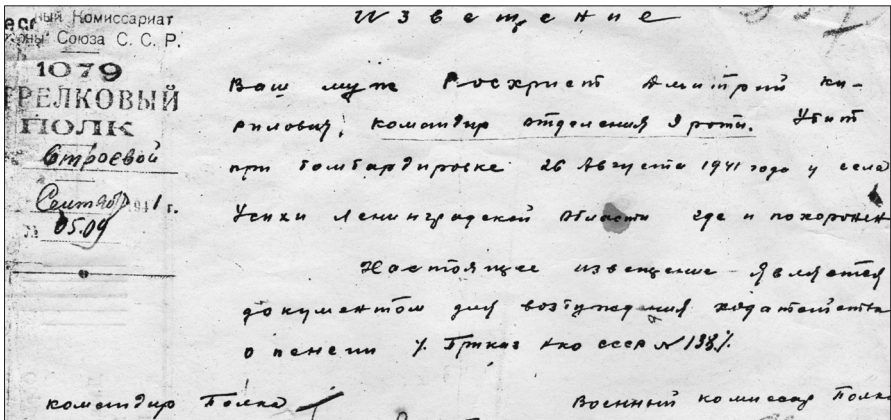 Извещение
ный Комиссариат
роны Союза С. С. Р.
1079
ТРЕЛКОВЫЙ
ПОЛК
Строевой
Сентябр 1941 г.
№ 05.09
Ваш муж Росхрист Дмитрий Ки-
рилович, командир отделения 9 роты. Убит
при бомбардировке 26 Августа 1941 года у села
Усихи Ленинградской области где и похоронен
Настоящее извещение является
документом для возбуждения ходатайства
о пенсии /. Приказ НКО СССР № 138/.
командир Полка
Военный комиссар Полка